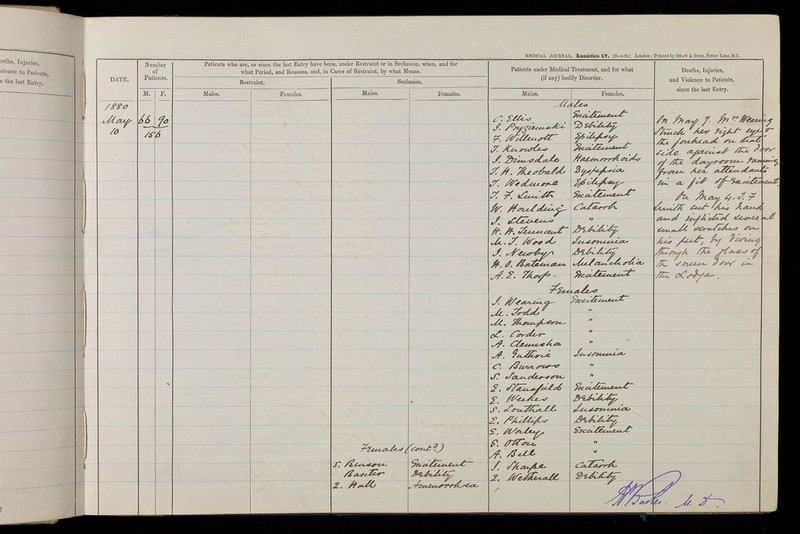 MEDICAL JOURNAL. Lunatics 17. London: Printed by SHAW & SONS, Fetter Lane, E.C.
Deaths, Injuries,
Violence to Patients,
the last Entry.
DATE.
Number of Patients.
M. F.
Patients who are, or since the last Entry have been, under Restraint or in Seclusion, when, and for
what Period, and Reasons, and, in Cases of Restraint, by what Means.
Restraint. Seclusion.
Males. Females. Males. Females.
Patients under Medical Treatment, and for what
(if any) bodily Disorder.
Males. Females.
Deaths, Injuries,
and Violence to Patients,
since the last Entry.
1880
May 10
66 90
156
Males
C. Ellis Excitement
J. Debility
F. Willmott Epilepsy
T. Knowles Excitement
J. Dimsdale Haemorrhoids
T. H. Theobald Dyspepsia
T. Wedmore Epilepsy
T. F. Smith Excitement
W. Houlding Catarrh
J. Stevens "
H. H. Tennant Debility
M. T. Wood Insomnia
J. Newby Debility
H. O. Bateman Melancholia
A. E. Thorp. Excitement
Females
J. Wearing Excitement
M. Todd "
M. Thompson "
L. Corder "
A. Clemesha "
A. Guthrie Insomnia
C. Burrows "
S. Sanderson "
E. Stansfield Excitement
E. Weekes Debility
S. Southall Insomnia
E. Phillips Debility
E. Worley Excitement
E. "
A. Bell "
J. Sharpe Catarrh
E. Wetherall Debility
Females (cont.d)
S. Benson Excitement
Baxter Debility
E. Hall Amenorrhoea
On May 7. Mrs Wearing
struck her right eye &
the forehead on that
side against the door
of the dayroom running
from her attendants
in a fit of Excitement
On May 4. T. F
Smith cut his hand
and inflicted several
small scratches on
his feet, by
through the glass of
the screen door in
the Lodge.
R Baker. M. D.